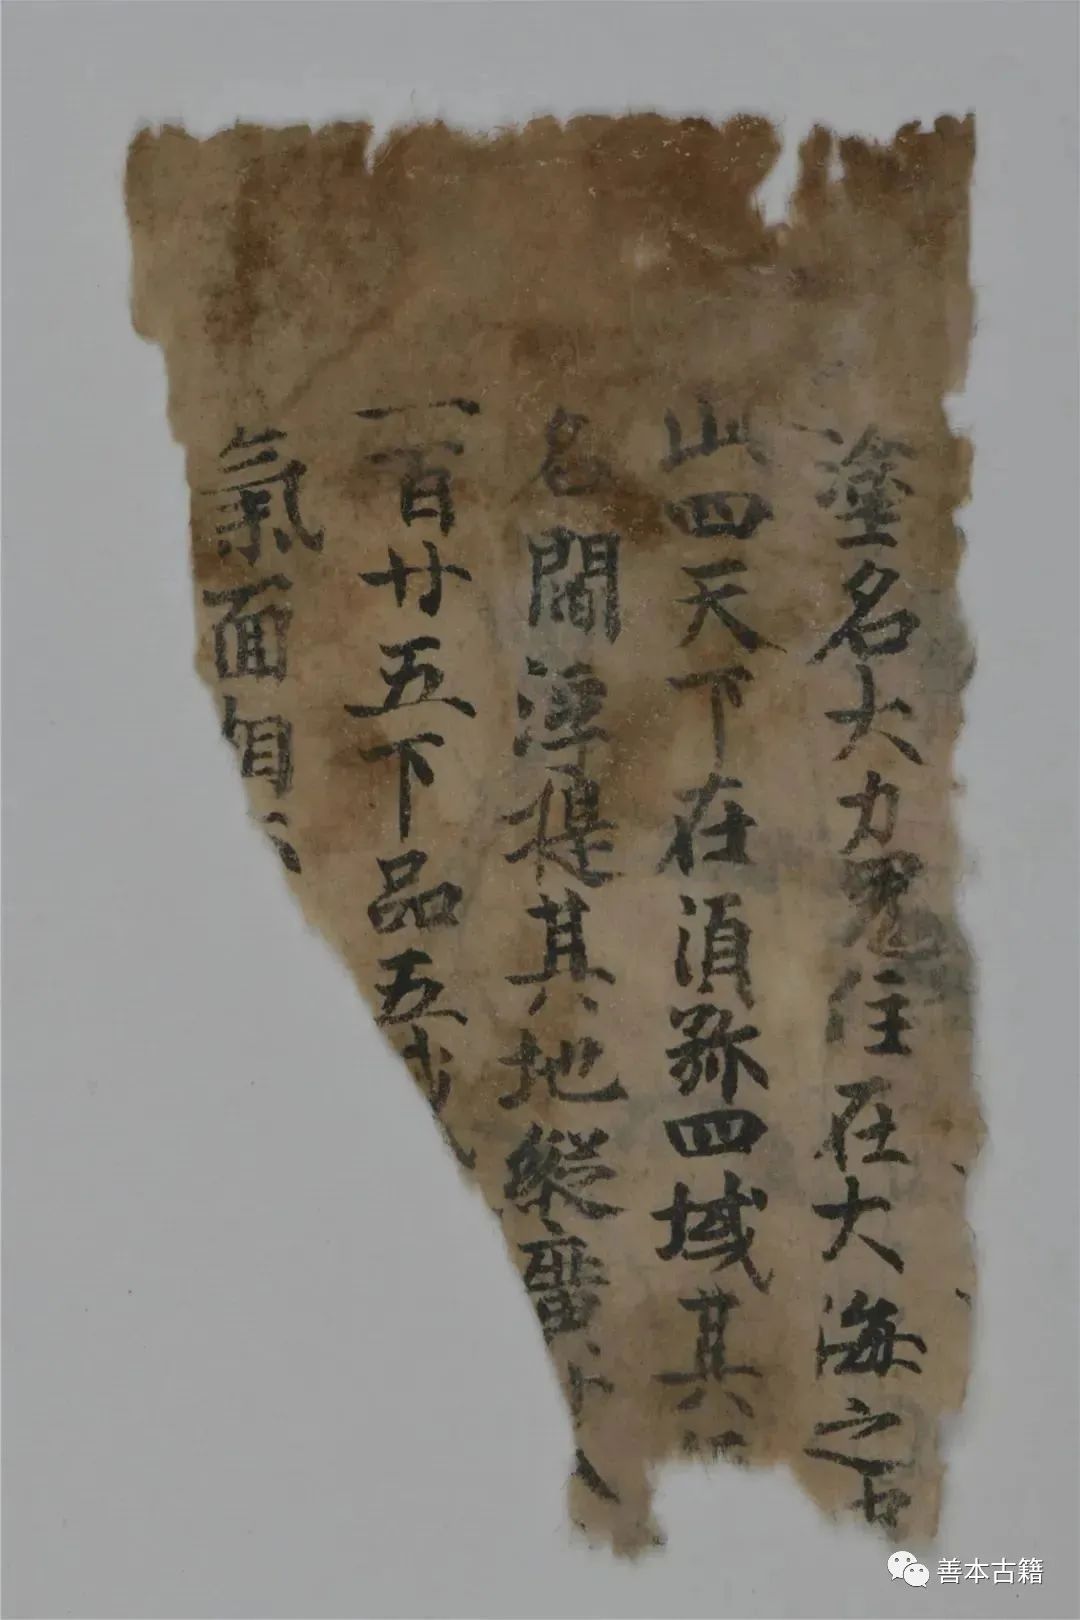 塗名大力鬼住在大海之
山四天下在須弥四域其
名閻浮提其地縱廣
一百廿五下品五
氣面
善本古籍